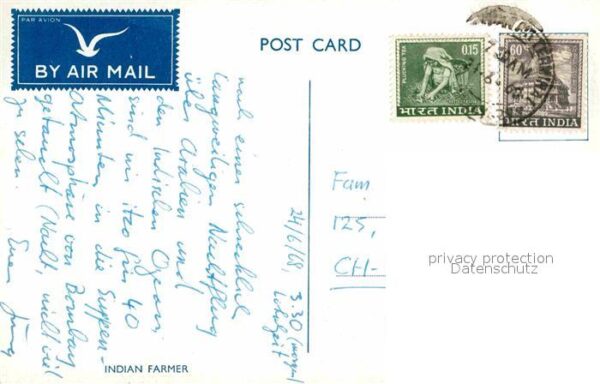 PAR AVION
BY AIR MAIL
POST CARD
PLUCKING TEA
0.15
भारत INDIA
60
भारत INDIA
nach einer schrecklich
langweiligen Nachtflug
über Arabien und
den Indischen Ozean,
sind wir itzo für 40
Minuten in die Suppen-
Atmosphäre von Bombay
getaucht (Nacht, nicht viel
zu sehen.
Euer Jürg
24/6/68, 3.30 (morgens)
Lokalzeit
Fam
125,
CH-
privacy protection
Datenschutz
INDIAN FARMER